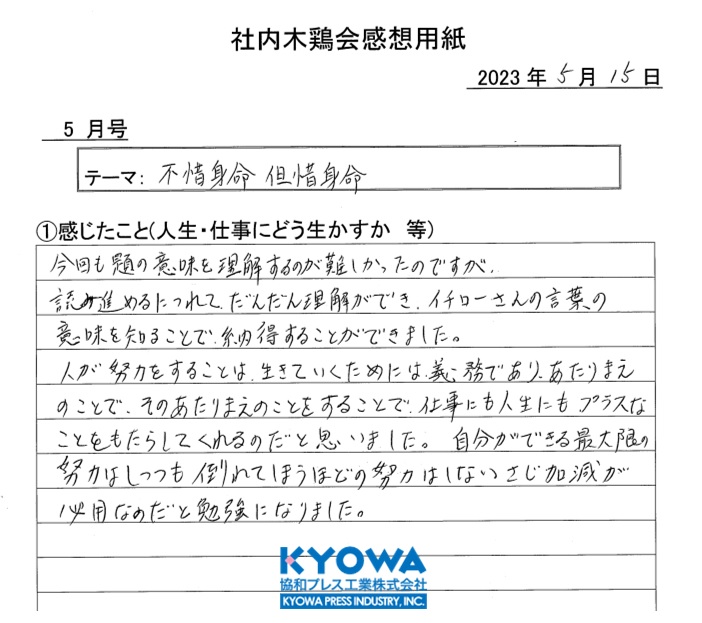 社内木鶏会感想用紙
2023年 5月 15日
5 月号
テーマ: 不惜身命 但惜身命
①感じたこと(人生・仕事にどう生かすか 等)
今回も題の意味を理解するのが難しかったのですが、
読み進めるにつれて、だんだん理解ができ、イチローさんの言葉の
意味を知ることで、納得することができました。
人が努力をすることは、生きていくためには、義務であり、あたりまえ
のことで、そのあたりまえのことをすることで、仕事にも人生にもプラスな
ことをもたらしてくれるのだと思いました。 自分ができる最大限の
努力はしつつも倒れてしまうほどの努力はしないさじ加減が
必用なのだと勉強になりました。
KYOWA
協和プレス工業株式会社
KYOWA PRESS INDUSTRY, INC.